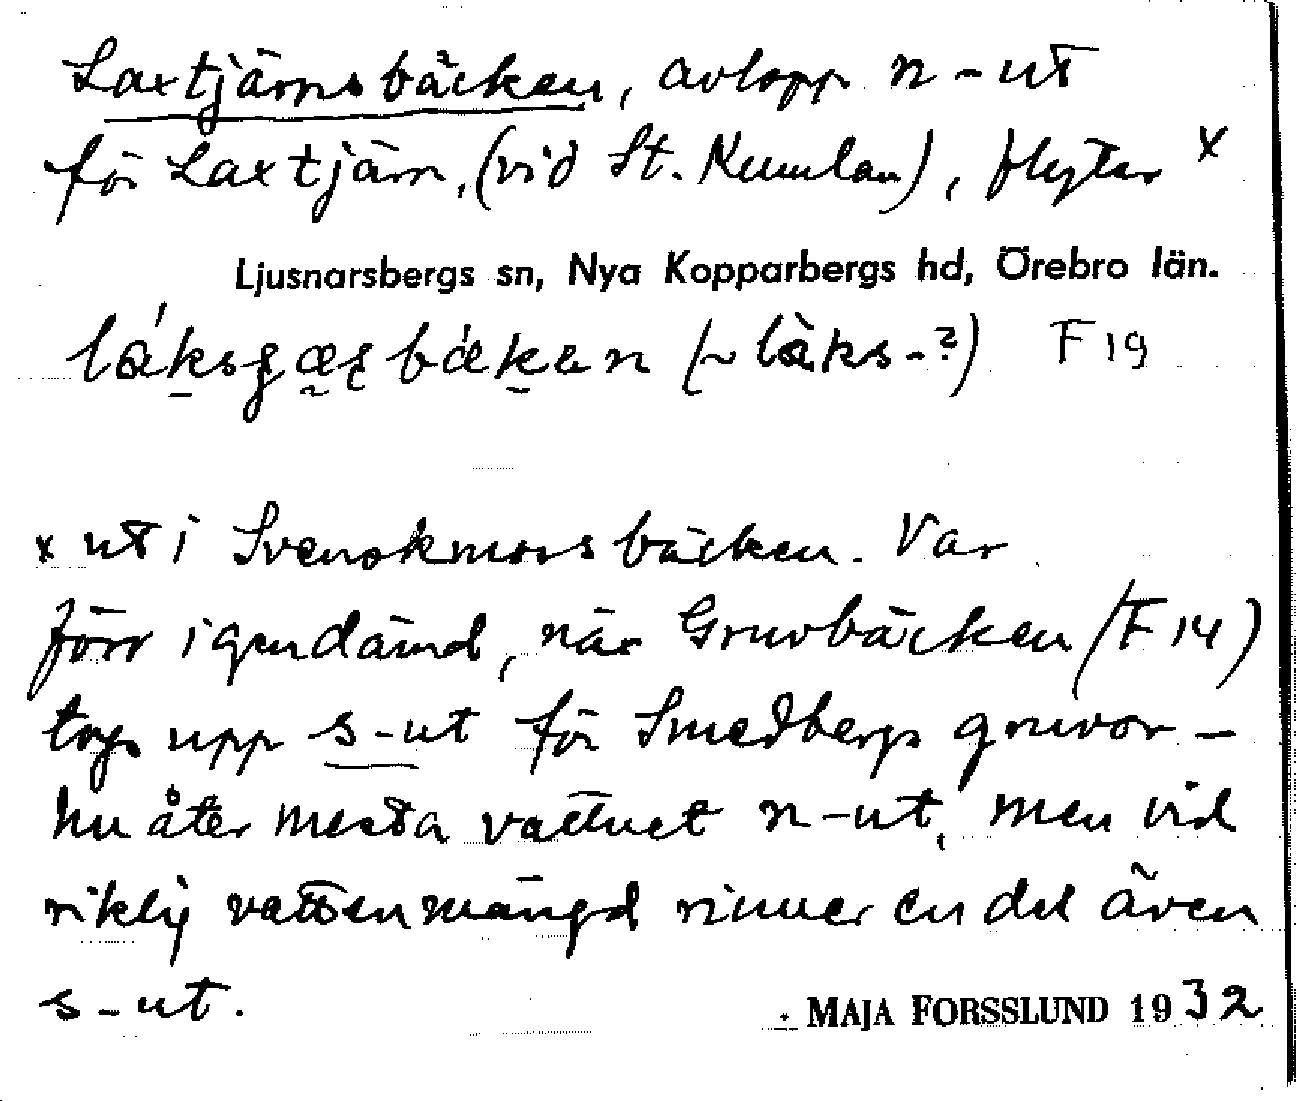 Laxtjärnsbäcken, avlopp n-ut
för Laxtjärn, (vid St. Kumlan), flyter x
Ljusnarsbergs sn, Nya Kopparbergs hd, Örebro län.
(~ làks-?) F 19
x ut i Svenskmorsbäcken. Var
förr igendämd, när Gruvbäcken (F 14)
togs upp s-ut för Smedbergs gruvor –
nu åter mesta vattnet n-ut, men vid
riklig vattenmängd rinner en del även
s-ut.
MAJA FORSSLUND 1932